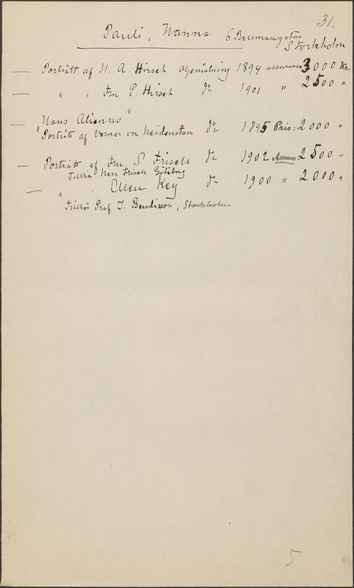 31.
Pauli, Hanna 6 Brunnsgatan
Stockholm
— Porträtt af H. A. Hirsch Oljemålning 1894 assurans 3000 Kr
— " " Fru E. Hirsch Do 1901 " 2500 "
— "Hans Alienus"
Porträtt af Verner von Heidenstam Do 1895 Pris: 2000 "
— Porträtt af Fru S. Frisell Do 1902 2500 "
Tillhör Herr Frisell
— " Ellen Key Do 1900 " 2000 "
Tillhör Prof I. Bendixon, Stockholm
5